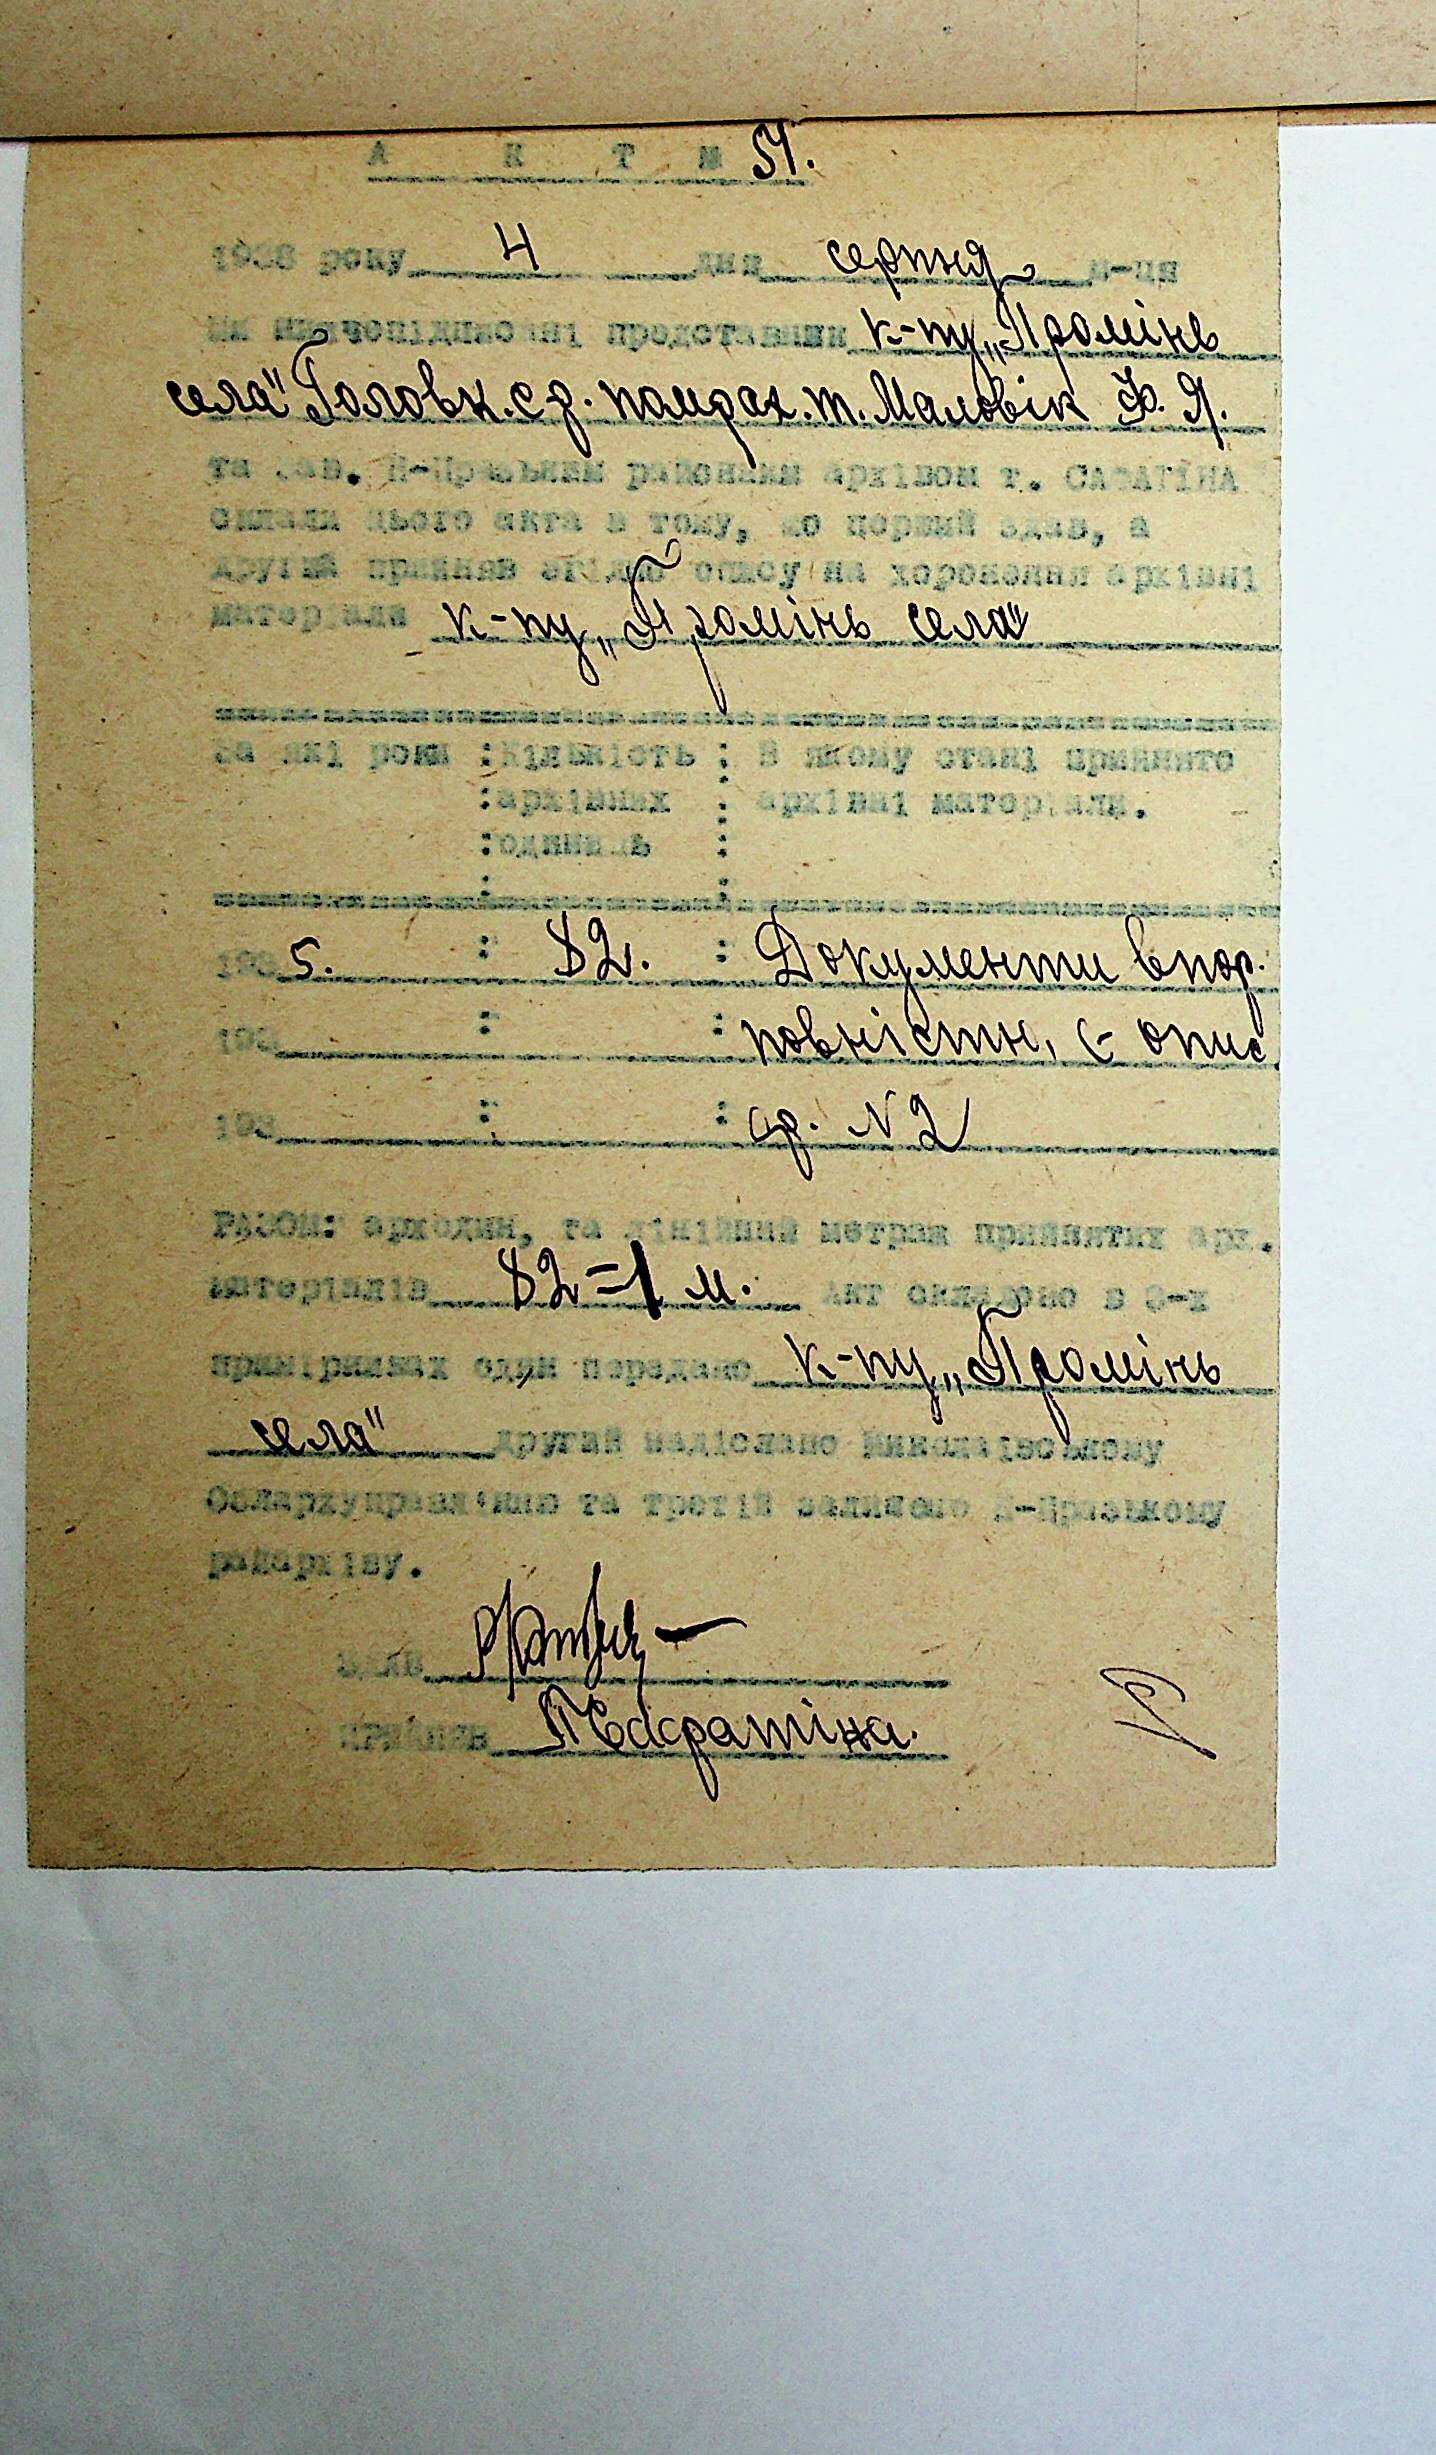 А К Т № 54.
1938 року 4 дня серпня м-ця
Ми нижчепідписані представник к-пу „Промінь
села" Головк. с/р. т. Маловік Ф. Я.
та зав. Н-Празьким районним архівом т.
склали цього акта в тому, що перший здав, а
другий прийняв згідно опису на хоронення архівні
матеріали к-пу „Промінь села"
За які роки : Кількість : В якому стані прийнято
: архівних : архівні матеріали.
: одиниць :
193 5. : 82. : Документи впор.
193 : : повністю, є опис
193 : : ар. № 2
РАЗОМ: арходин, та лінійний метраж прийнятих арх.
матеріалів 82 = 1 м. Акт складено в 3-х
примірниках один передано к-пу „Промінь
села" другий надіслано Миколаївському
Облархуправлінню та третій залишено Н-Празькому
райархіву.
ЗДАВ
ПРИЙНЯВ